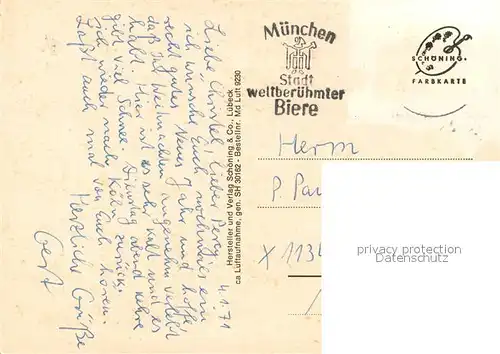 4.1.71
Liebe Christel, lieber Percy,
ich wünsche Euch nochmals ein
recht gutes Neues Jahr und hoffe,
daß Ihr Weihnachten angenehm verlebt
habt. Hier ist es sehr kalt und es
gibt viel Schnee. Dienstag abend kehre
ich wieder nach Köln zurück.
Laßt auch mal von Euch hören.
Herzliche Grüße
Gert
Hersteller und Verlag Schöning & Co., Lübeck
ca Luftaufnahme, gen. SH 30162 - Bestellnr. Md Luft 9230
München
Stadt
weltberühmter
Biere
SCHÖNING
FARBKARTE
Herrn
P. Pau
X 1134
privacy protection
datenschutz